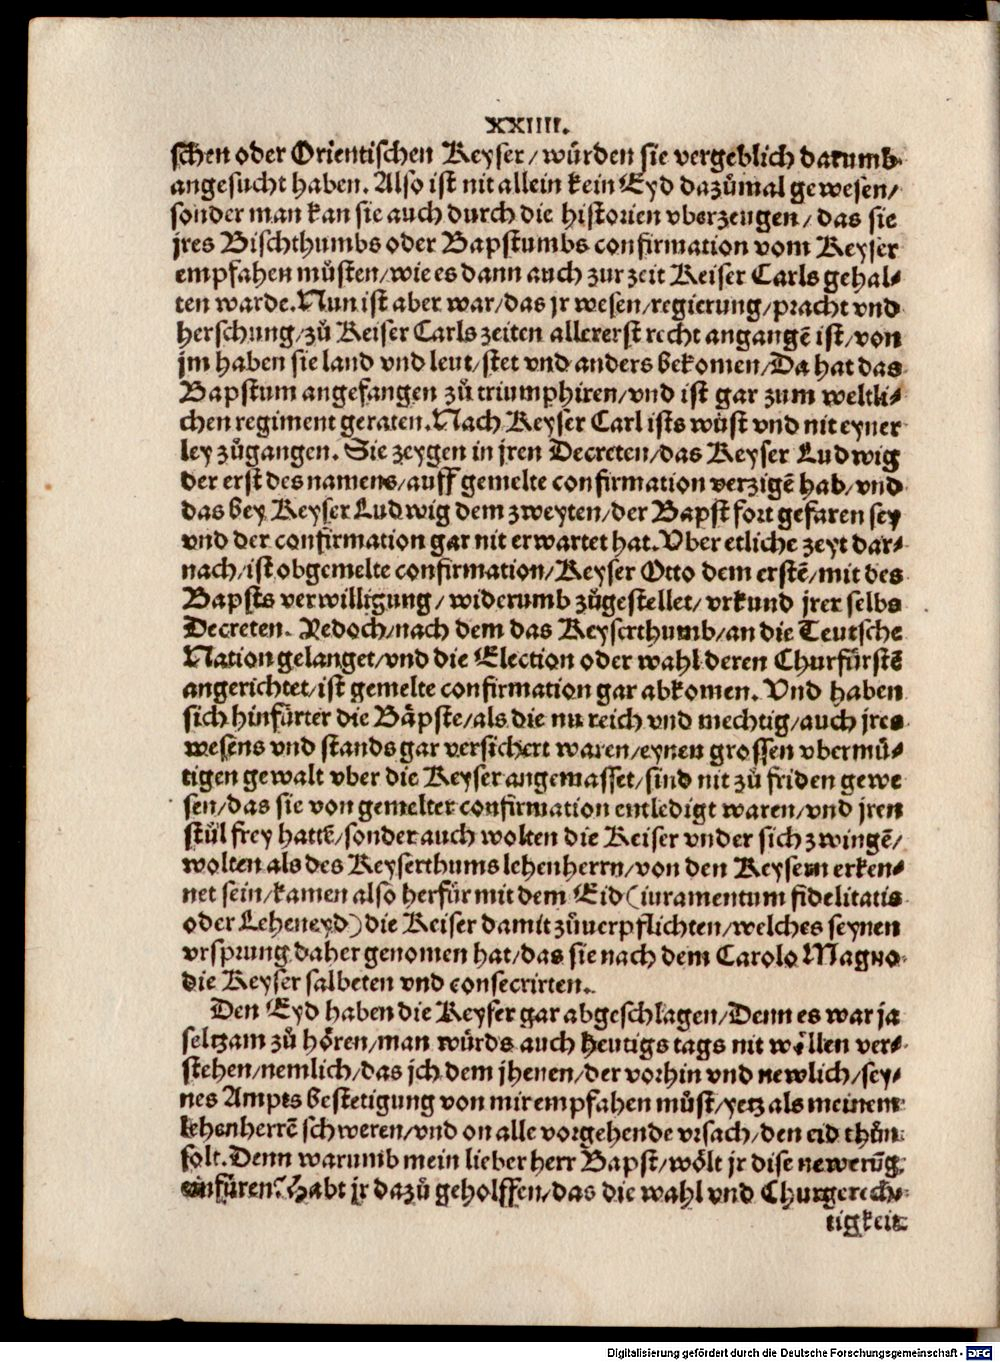 XXIIII.
schen oder Orientischen Keyser/würden sie vergeblich darumb
angesucht haben. Also ist nit allein kein Eyd dazůmal gewesen/
sonder man kan sie auch durch die historien vberzeugen/das sie
jres Bischthumbs oder Bapstumbs confirmation vom Keyser
empfahen můsten/wie es dann auch zur zeit Keiser Carls gehal-
ten warde. Nun ist aber war/das jr wesen/regierung/pracht vnd
herschung/zů Keiser Carls zeiten allererst recht angangē ist/von
jm haben sie land vnd leut/stet vnd anders bekomen/Da hat das
Bapstum angefangen zů triumphiren/vnd ist gar zum weltli-
chen regiment geraten. Nach Keyser Carl ists wüst vnd nit eyner
ley zůgangen. Sie zeygen in jren Decreten/das Keyser Ludwig
der erst des namens/auff gemelte confirmation verzigē hab/vnd
das bey Keyser Ludwig dem zweyten/der Bapst fort gefaren sey
vnd der confirmation gar nit erwartet hat. Vber etliche zeyt dar-
nach/ist obgemelte confirmation/Keyser Otto dem erstē/mit des
Bapsts verwilligung/widerumb zůgestellet/vrkund jrer selbs
Decreten. Yedoch/nach dem das Keyserthumb/an die Teutsche
Nation gelanget/vnd die Election oder wahl deren Churfürstē
angerichtet/ist gemelte confirmation gar abkomen. Vnd haben
sich hinfürter die Bäpste/als die nu reich vnd mechtig/auch jres
wesens vnd stands gar versichert waren/eynen grossen vbermü-
tigen gewalt vber die Keyser angemasset/sind nit zů friden gewe
sen/das sie von gemelter confirmation entledigt waren/vnd jren
stůl frey hattē/sonder auch wolten die Keiser vnder sich zwingē/
wolten als des Keyserthums lehenherrn/von den Keysern erken-
net sein/kamen also herfür mit dem Eid (iuramentum fidelitatis
oder Leheneyd) die Keiser damit zůuerpflichten/welches seynen
vrsprung daher genomen hat/das sie nach dem Carolo Magno
die Keyser salbeten vnd consecrirten.
Den Eyd haben die Keyser gar abgeschlagen/Denn es war ja
seltzam zů hören/man würds auch heutigs tags nit wöllen ver-
stehen/nemlich/das jch dem jhenen/der vorhin vnd newlich/sey-
nes Ampts bestetigung von mir empfahen můst/yetz als meinem
lehenherrē schweren/vnd on alle vorgehende vrsach/den eid thůn
solt. Denn warumb mein lieber herr Bapst/wölt jr dise newerūg
einfüren? Habt jr dazů geholffen/das die wahl vnd Churgerech-
tigkeit
Digitalisierung gefördert durch die Deutsche Forschungsgemeinschaft - DFG